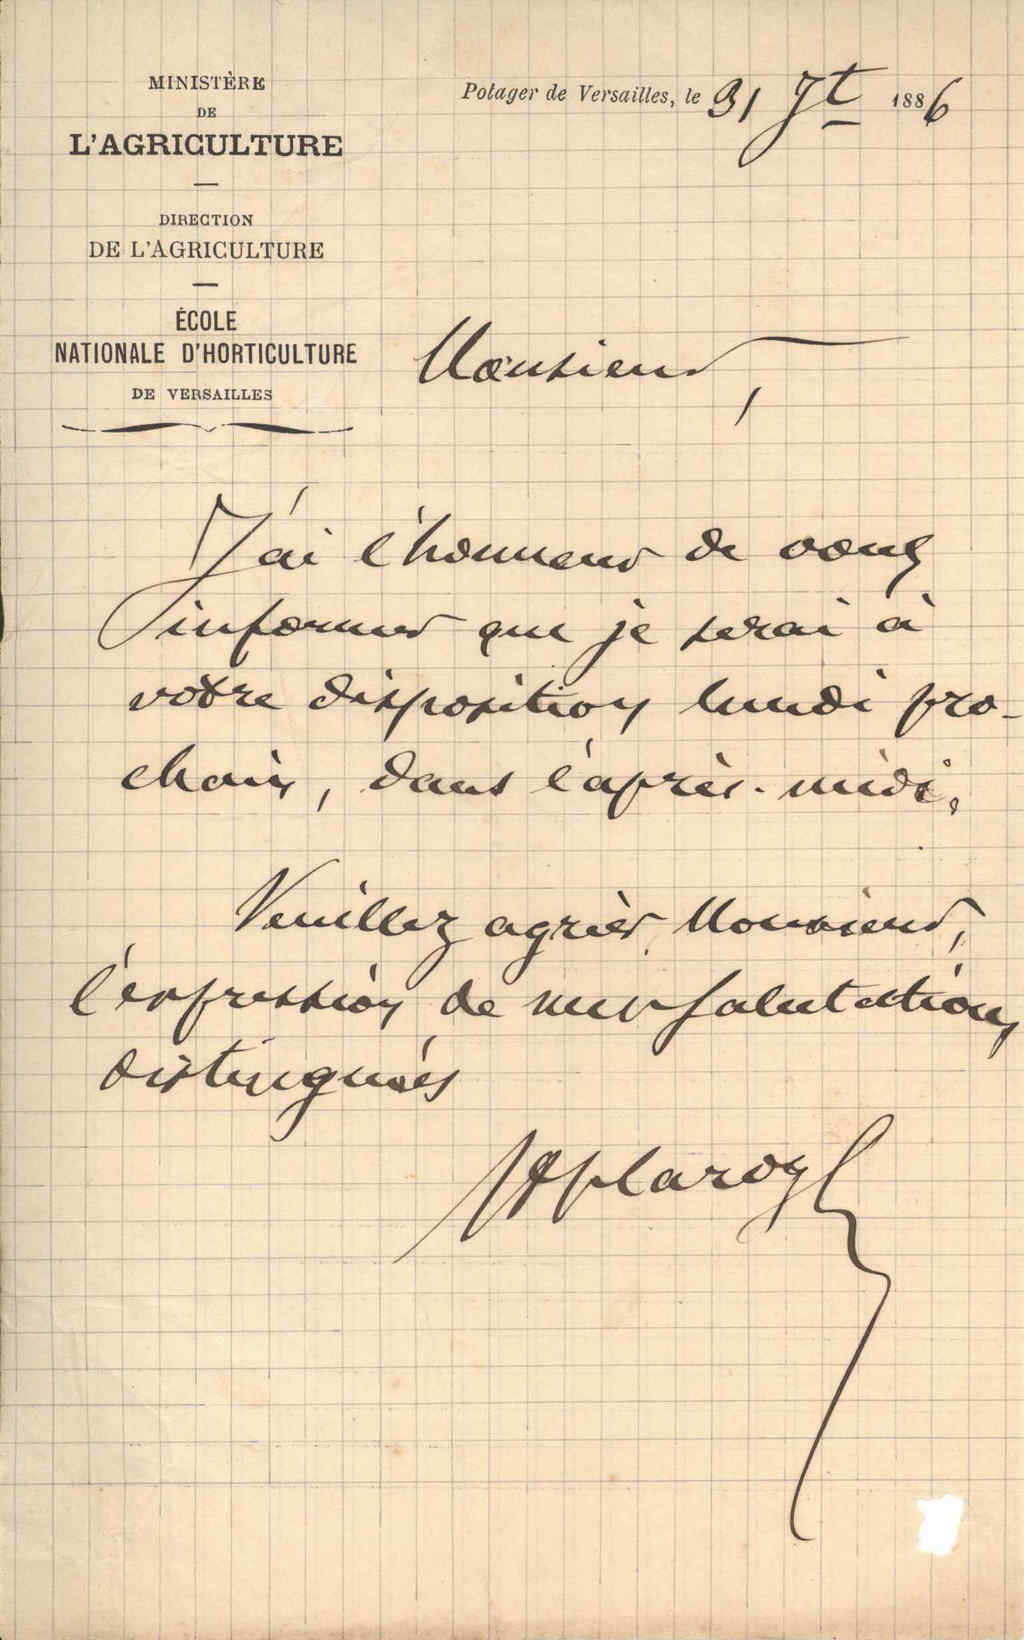 MINISTÈRE
DE
L'AGRICULTURE
DIRECTION
DE L'AGRICULTURE
ÉCOLE
NATIONALE D'HORTICULTURE
DE VERSAILLES
Potager de Versailles, le 31 Jt 1886
Monsieur,
J'ai l'honneur de vous
informer que je serai à
votre disposition lundi pro-
chain, dans l'après-midi.
Veuillez agréer Monsieur,
l'expression de mes salutations
distinguées